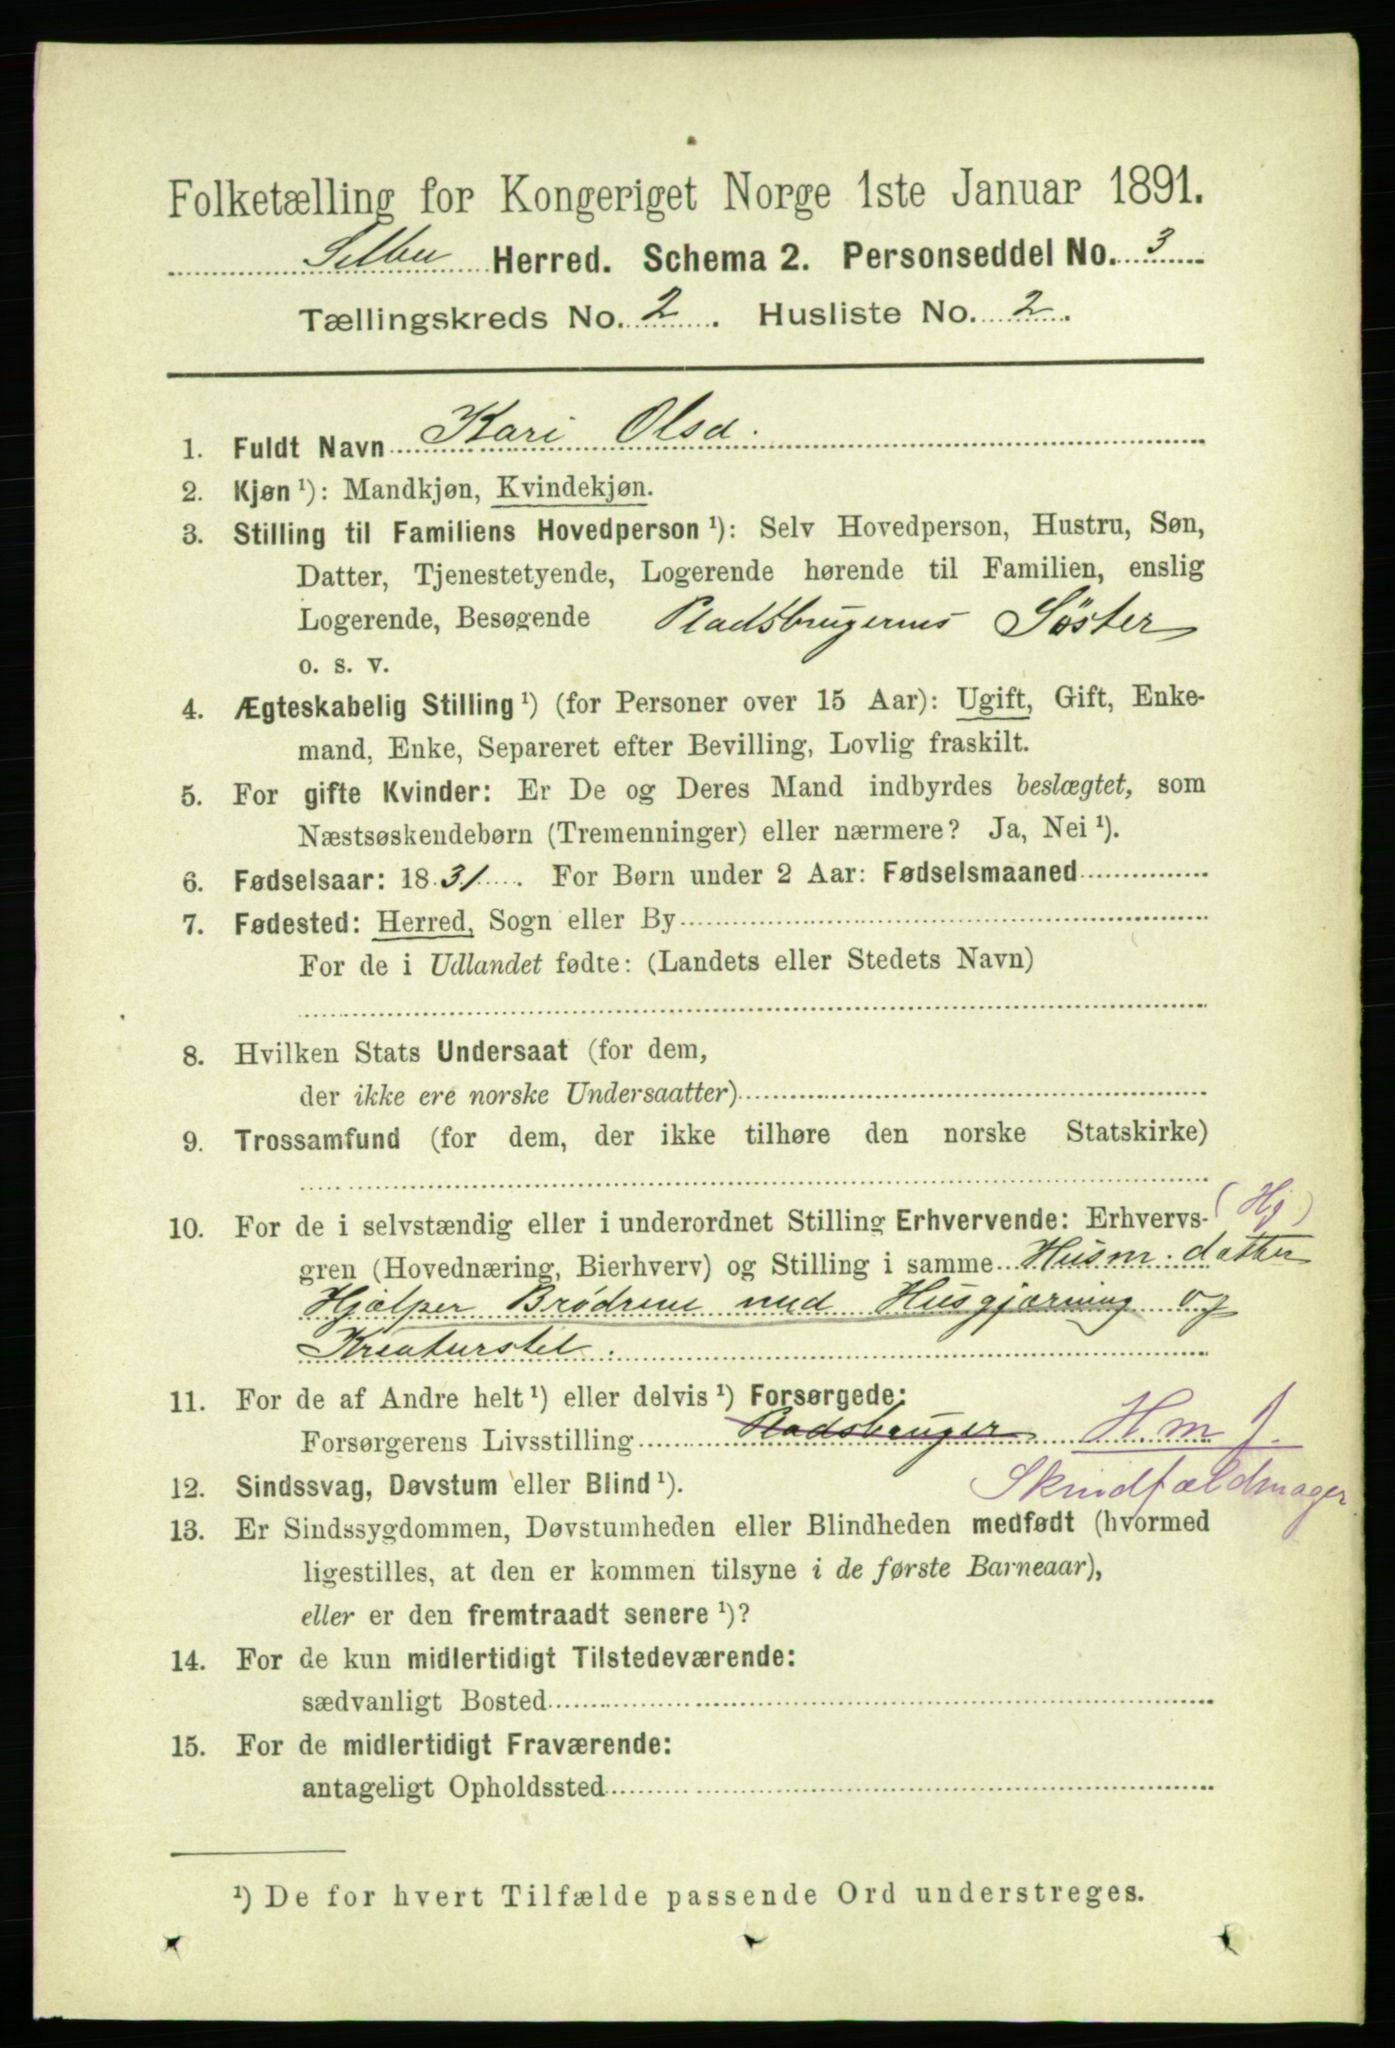 Folketælling for Kongeriget Norge 1ste Januar 1891.
Selbu Herred. Schema 2. Personseddel No. 3
Tællingskreds No. 2. Husliste No. 2.
1. Fuldt Navn Kari Olsd.
2. Kjøn ¹): Mandkjøn, Kvindekjøn.
3. Stilling til Familiens Hovedperson ¹): Selv Hovedperson, Hustru, Søn,
Datter, Tjenestetyende, Logerende hørende til Familien, enslig
Logerende, Besøgende Pladsbrugerens Søster
o. s. v.
4. Ægteskabelig Stilling ¹) (for Personer over 15 Aar): Ugift, Gift, Enke-
mand, Enke, Separeret efter Bevilling, Lovlig fraskilt.
5. For gifte Kvinder: Er De og Deres Mand indbyrdes beslægtet, som
Næstsøskendebørn (Tremenninger) eller nærmere? Ja, Nei ¹).
6. Fødselsaar: 1831. For Børn under 2 Aar: Fødselsmaaned
7. Fødested: Herred, Sogn eller By
For de i Udlandet fødte: (Landets eller Stedets Navn)
8. Hvilken Stats Undersaat (for dem,
der ikke ere norske Undersaatter)
9. Trossamfund (for dem, der ikke tilhøre den norske Statskirke)
10. For de i selvstændig eller i underordnet Stilling Erhvervende: Erhvervs- (Hj)
gren (Hovednæring, Bierhverv) og Stilling i samme Husm. datter
Hjælper Brødrene med Husgjærning og
Kreaturstel.
11. For de af Andre helt ¹) eller delvis ¹) Forsørgede:
Forsørgerens Livsstilling Pladsbruger H m J.
12. Sindssvag, Døvstum eller Blind ¹). Skindfældmager
13. Er Sindssygdommen, Døvstumheden eller Blindheden medfødt (hvormed
ligestilles, at den er kommen tilsyne i de første Barneaar),
eller er den fremtraadt senere ¹)?
14. For de kun midlertidigt Tilstedeværende:
sædvanligt Bosted
15. For de midlertidigt Fraværende:
antageligt Opholdssted
¹) De for hvert Tilfælde passende Ord understreges.